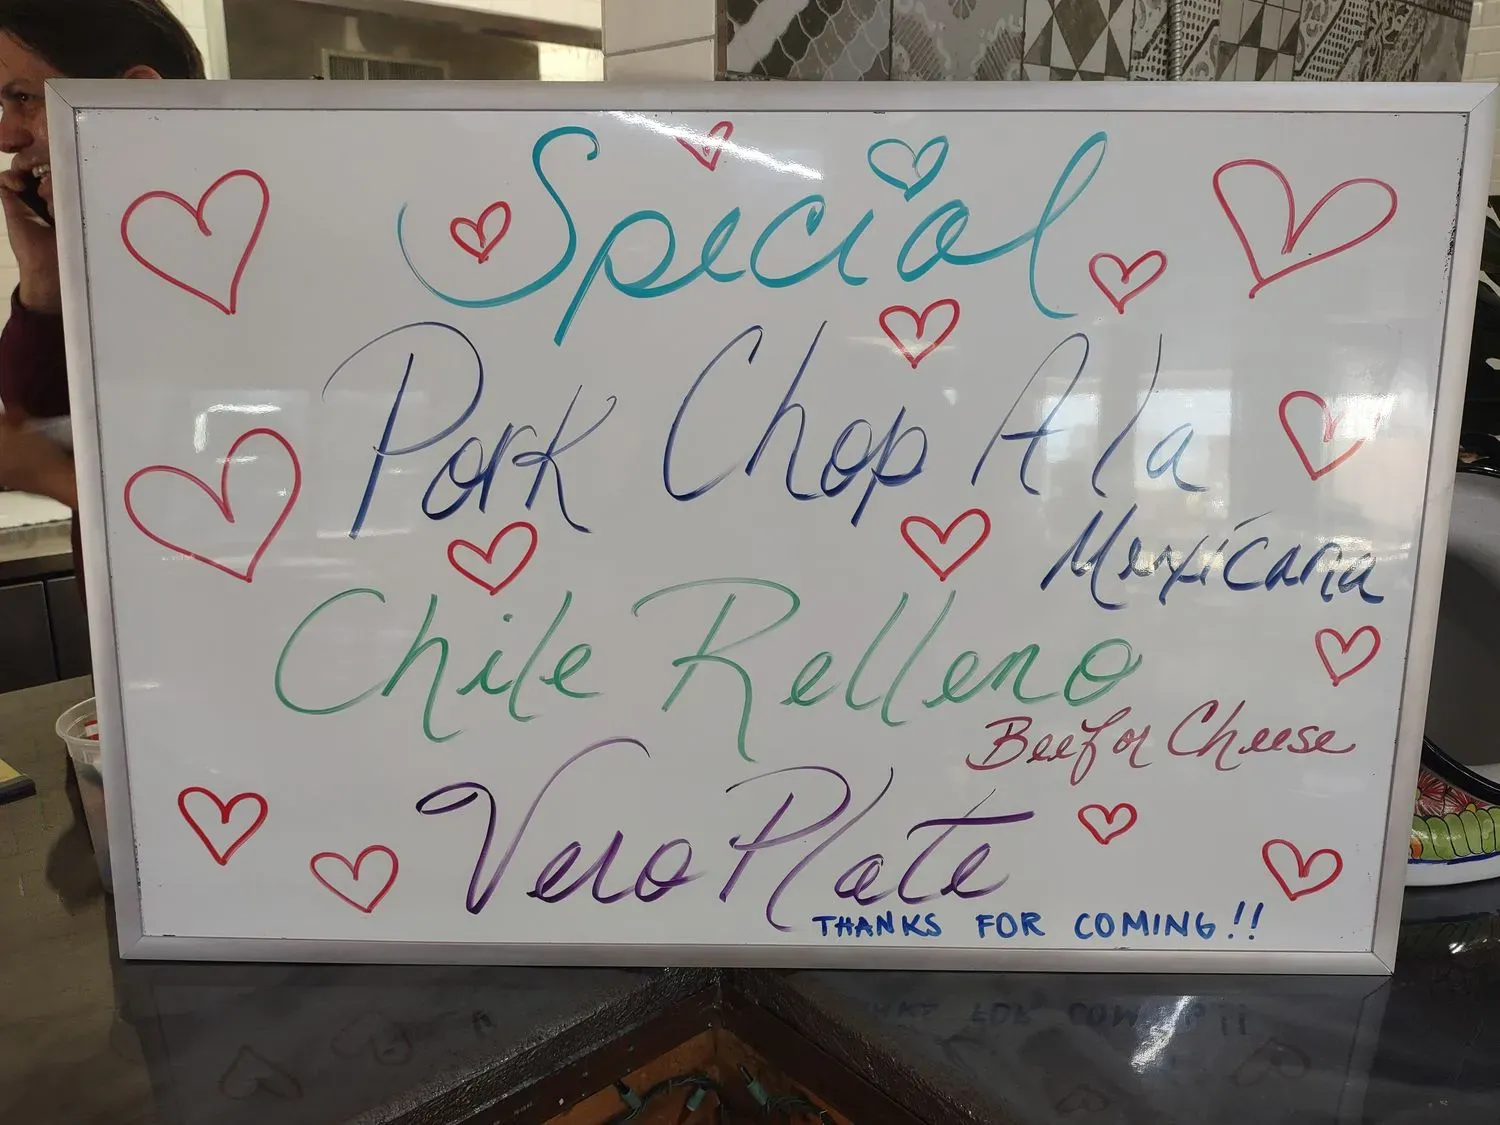 Special
Pork Chop A la
Mexicana
Chile Relleno
Beef or Cheese
Vero Plate
THANKS FOR COMING!!